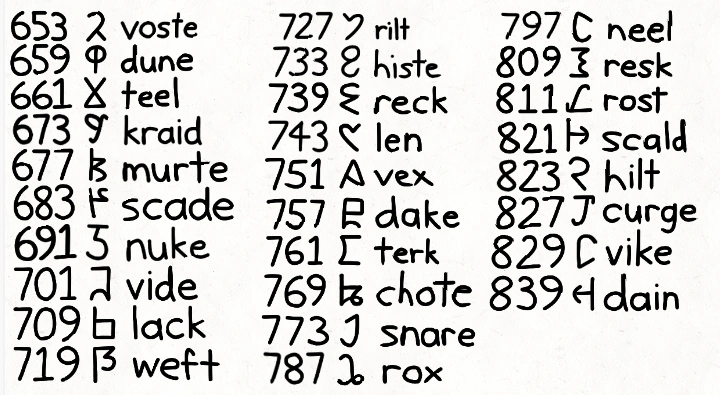 653 voste
659 dune
661 teel
673 kraid
677 murte
683 scade
691 nuke
701 vide
709 lack
719 weft
727 rilt
733 histe
739 reck
743 len
751 vex
757 dake
761 terk
769 chote
773 snare
787 rox
797 neel
809 resk
811 rost
821 scald
823 hilt
827 curge
829 vike
839 dain